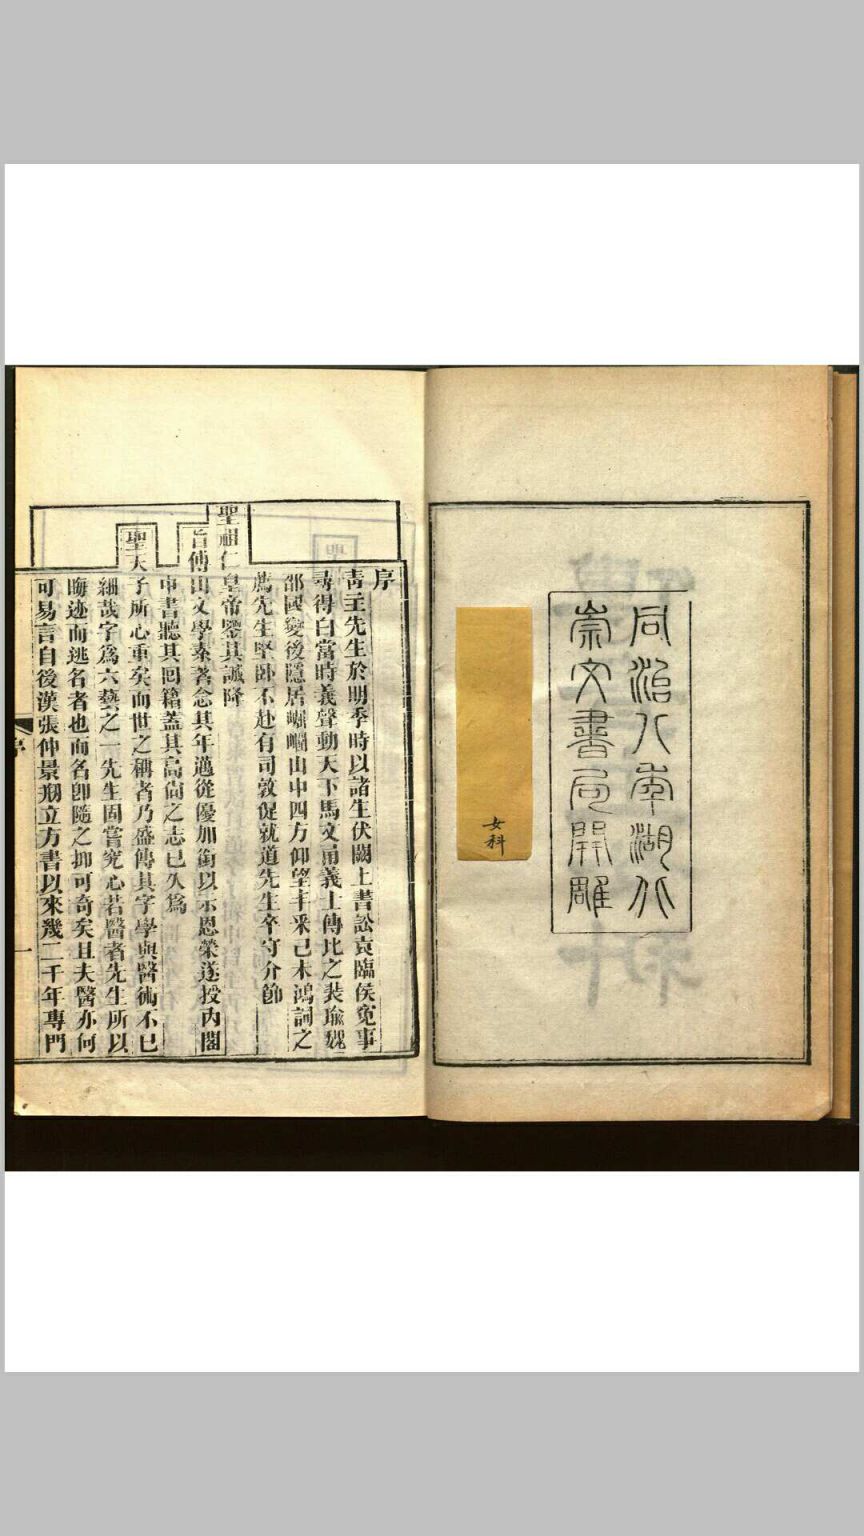 同治八年湖北
崇文書局開雕
女科
序
青主先生於明季時以諸生伏闕上書訟袁臨侯寃事
尋得白當時義聲動天下馬文甬義士傳比之裴瑜魏
邵國變後隱居崛𡼏山中四方仰望丰采己未鴻詞之
薦先生堅卧不赴有司敦促就道先生卒守介節
聖祖仁皇帝鑒其誠降
旨傅山文學素著念其年邁從優加銜以示恩榮遂授内閣
中書聽其回籍葢其高尙之志已久爲
聖天子所心重矣而世之稱者乃盛傳其字學與醫術不已
細哉字爲六藝之一先生固嘗究心若醫者先生所以
晦迹而逃名者也而名卽隨之抑可奇矣且夫醫亦何
可易言自後漢張仲景剏立方書以來幾二千年專門
序
一